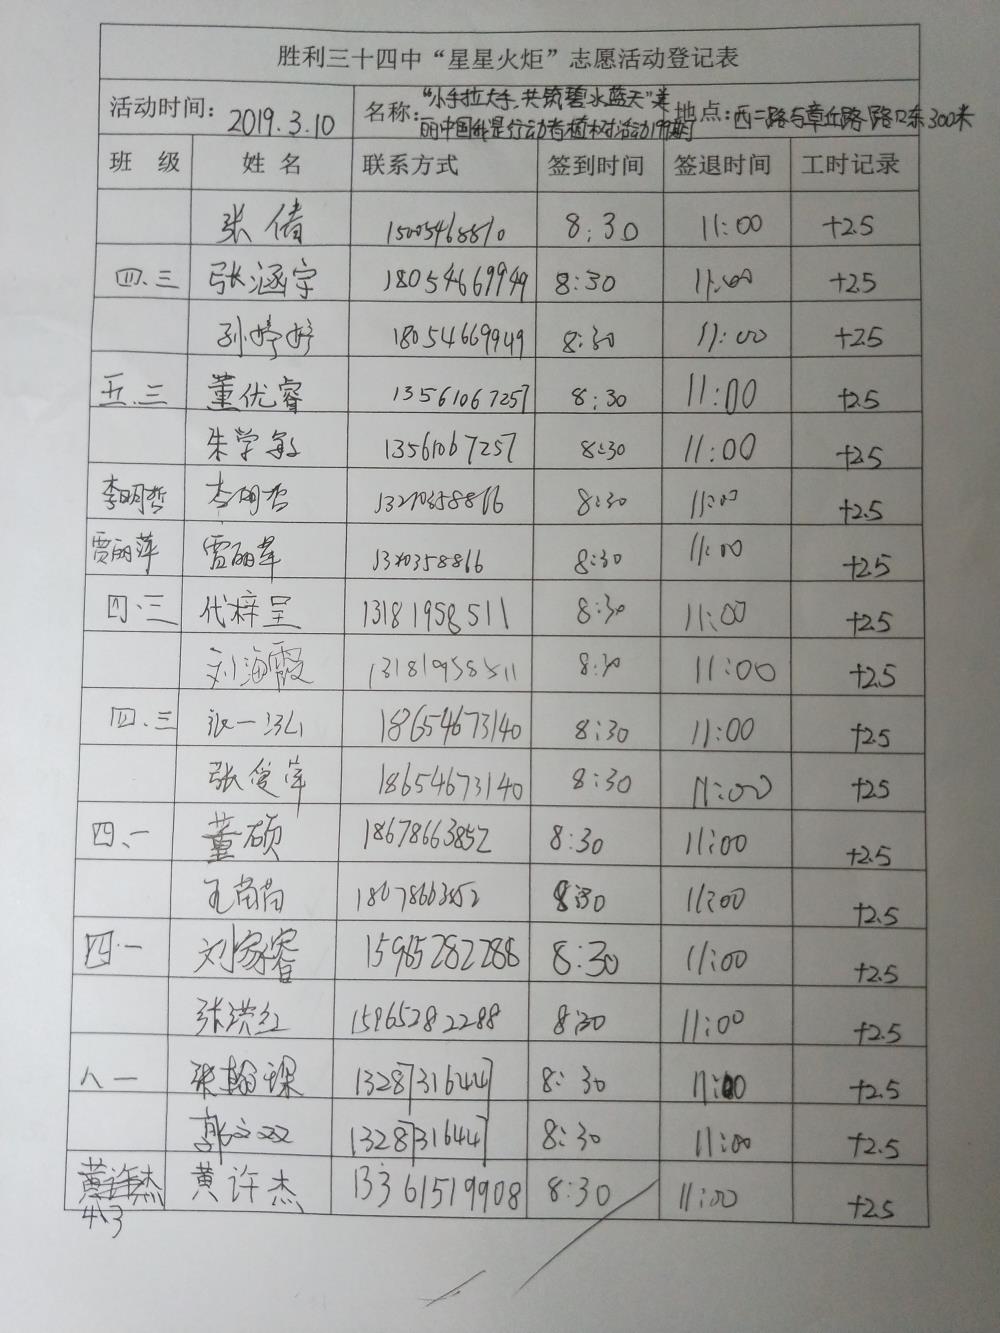 胜利三十四中“星星火炬”志愿活动登记表
活动时间：2019.3.10 名称：“小手拉大手，共筑碧水蓝天”美丽中国我是行动者植树活动 地点：西二路与章丘路路口东300米
班 级 姓 名 联系方式 签到时间 签退时间 工时记录
张倩 15005468810 8:30 11:00 +2.5
四.三 张涵宇 18054669949 8:30 11:00 +2.5
孙婷婷 18054669949 8:30 11:00 +2.5
五.三 董优睿 13561067257 8:30 11:00 +2.5
朱学敏 13561067257 8:30 11:00 +2.5
李明哲 李明哲 8:30 11:00 +2.5
贾丽萍 贾丽苹 8:30 11:00 +2.5
四.三 代梓呈 13181958511 8:30 11:00 +2.5
刘海霞 13181958511 8:30 11:00 +2.5
四.三 张一 18654673140 8:30 11:00 +2.5
张俊萍 18654673140 8:30 11:00 +2.5
四、一 董硕 18678663852 8:30 11:00 +2.5
王苗苗 18678663852 8:30 11:00 +2.5
四.一 刘家睿 15965282288 8:30 11:00 +2.5
张洪红 15965282288 8:30 11:00 +2.5
八一 张翰琛 13287316447 8:30 11:00 +2.5
郭文双 13287316447 8:30 11:00 +2.5
黄许杰 黄许杰 13361519908 8:30 11:00 +2.5
4.3